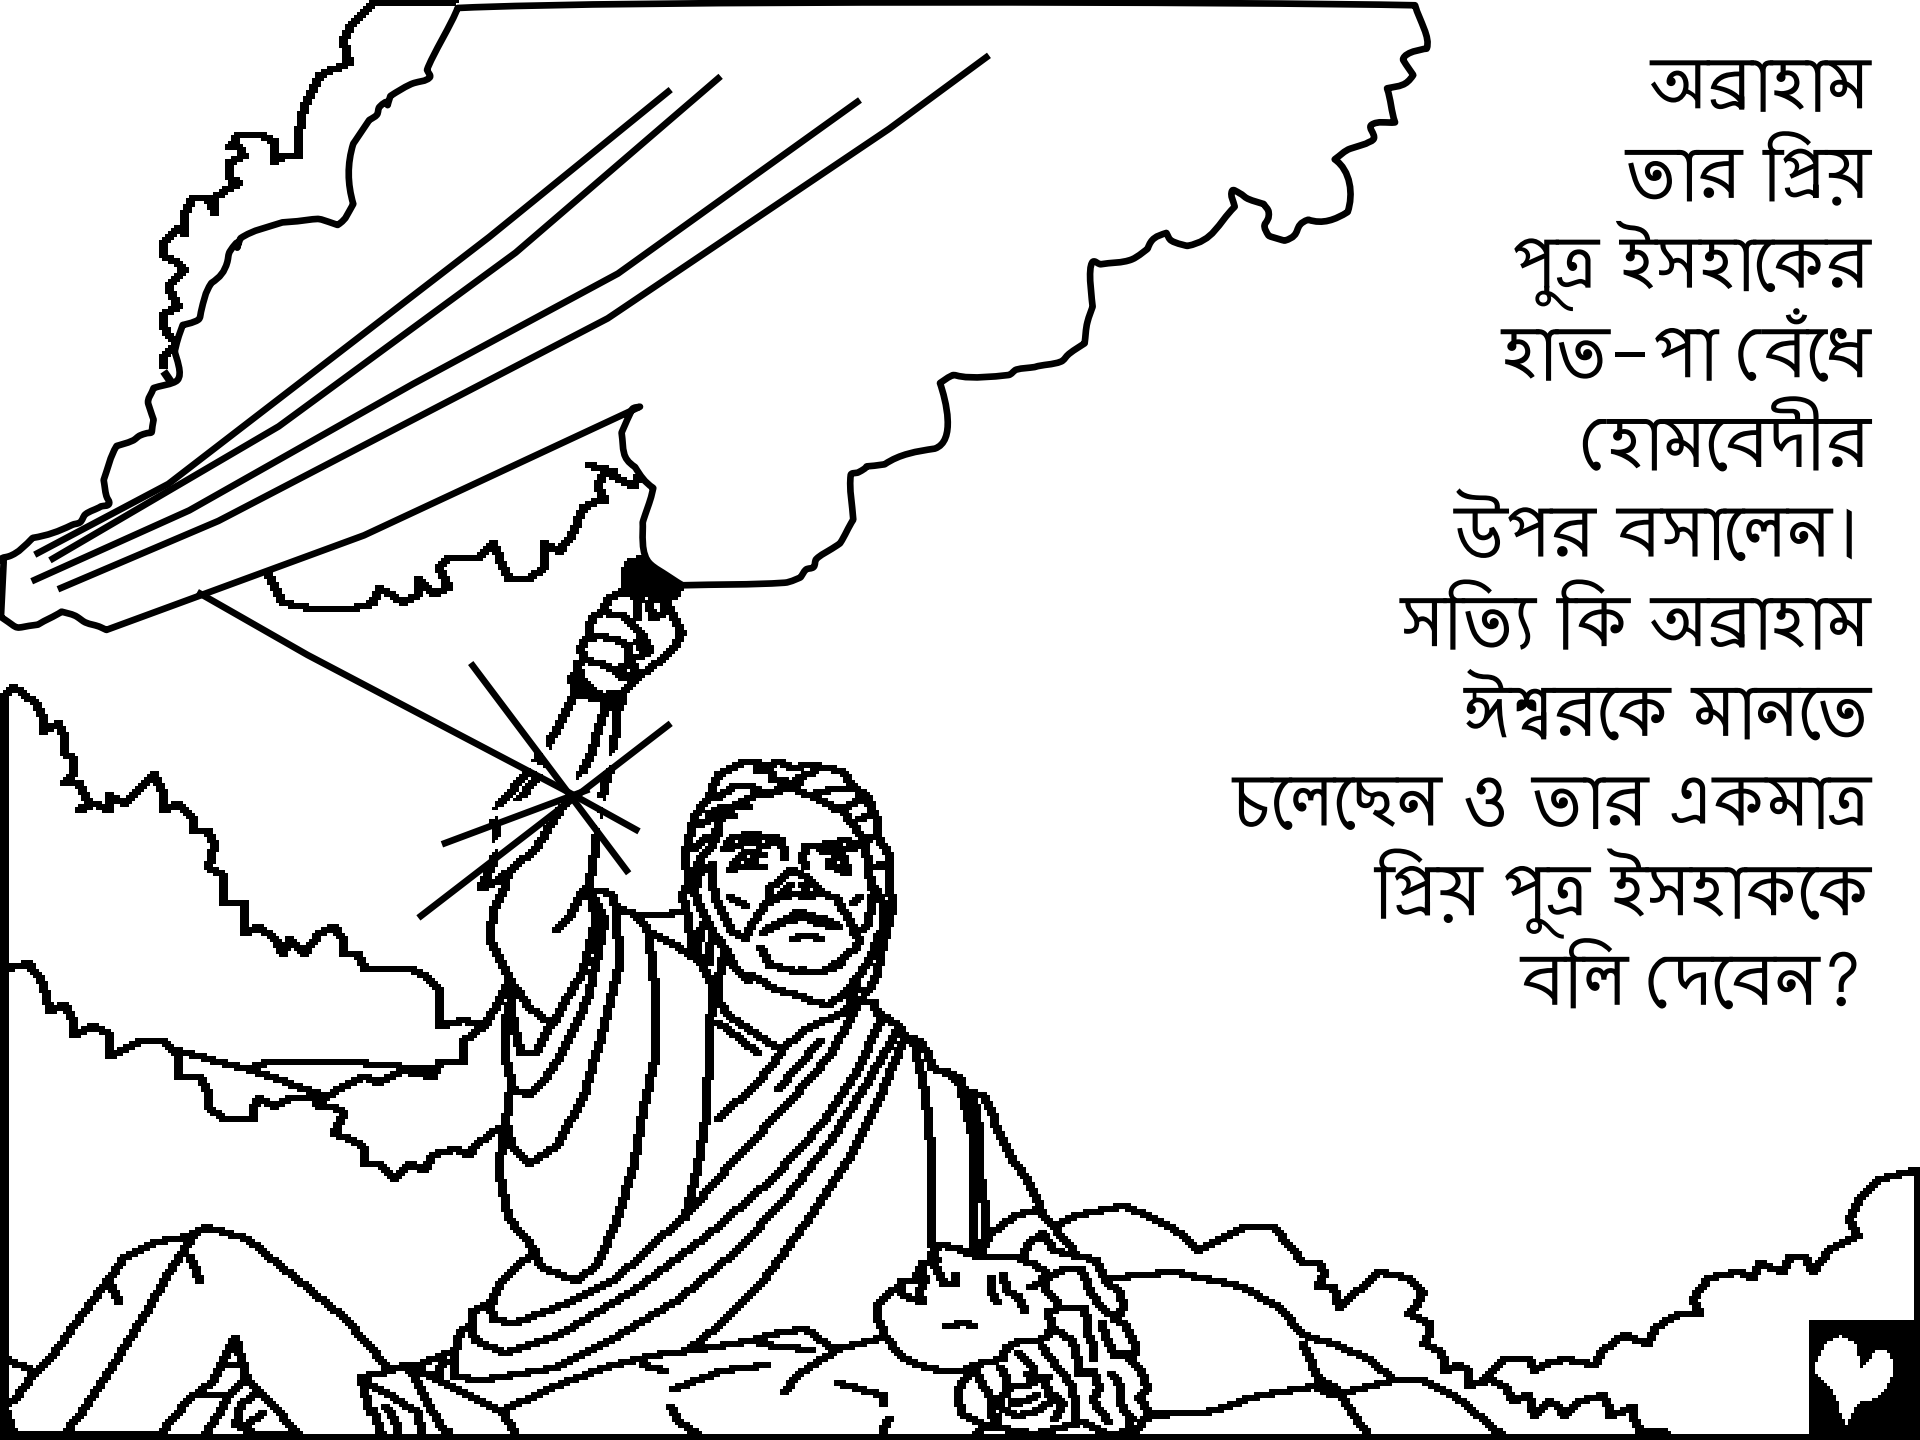 অব্রাহাম
তার প্রিয়
পুত্র ইসহাকের
হাত-পা বেঁধে
হোমবেদীর
উপর বসালেন।
সত্যি কি অব্রাহাম
ঈশ্বরকে মানতে
চলেছেন ও তার একমাত্র
প্রিয় পুত্র ইসহাককে
বলি দেবেন?